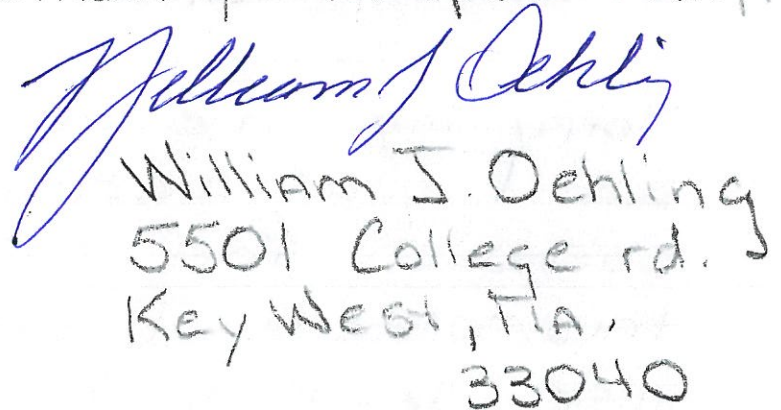 William J Oehling
William J. Oehling
5501 College rd.
Key West, FlA.
33040